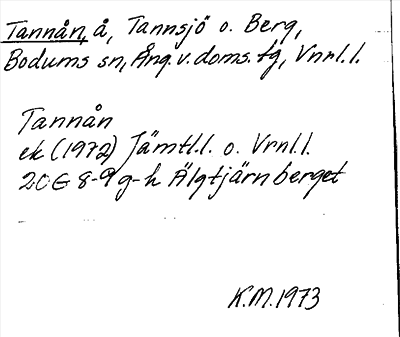 Tannån, å, Tannsjö o. Berg,
Bodums sn, Ång.v.doms.tg, Vnrl.l.
Tannån
ek (1972) Jämtl.l. o. Vrnl.l.
20G 8-9 g-h Älgtjärnberget
K.M.1973